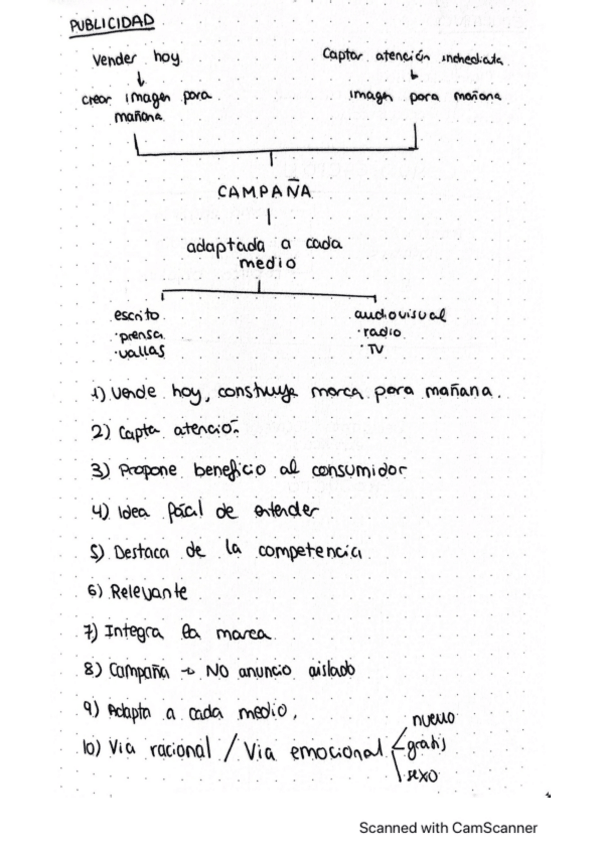 PUBLICIDAD
Vender hoy
Captar atención inmediata
crear imagen para mañana
imagen para mañana
CAMPAÑA
adaptada a cada
medio
escrito
audiovisual
·prensa
·radio
·vallas
·TV
1) Vende hoy, construye marca para mañana.
2) Capta atención
3) Propone beneficio al consumidor
4) Idea fácil de entender
5) Destaca de la competencia
6) Relevante
7) Integra la marca
8) Campaña → NO anuncio aislado
9) Adapta a cada medio.
10) Via racional / Via emocional
nuevo
gratis
sexo
Scanned with CamScanner